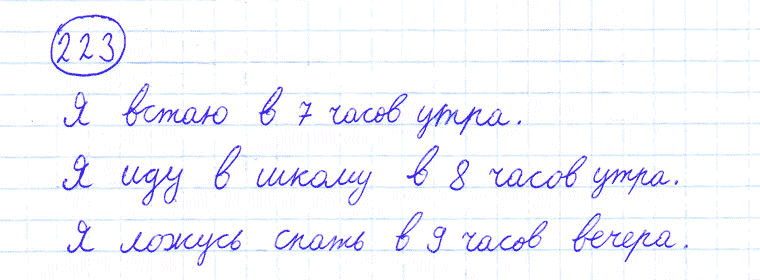 223
Я встаю в 7 часов утра.
Я иду в школу в 8 часов утра.
Я ложусь спать в 9 часов вечера.